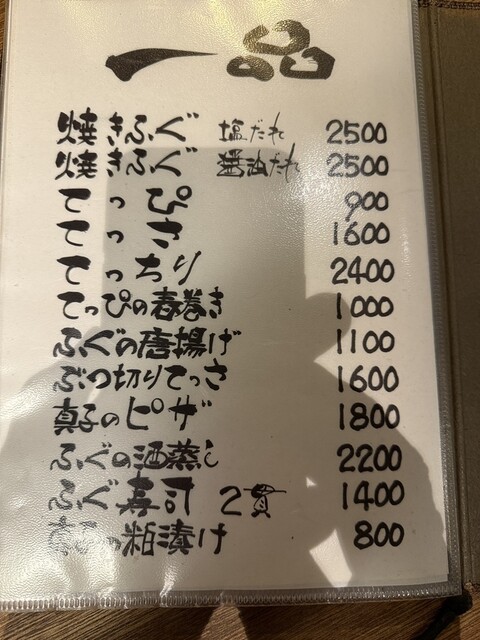 一品
焼きふぐ 塩だれ 2500
焼きふぐ 醤油だれ 2500
てっぴ 900
てっさ 1600
てっちり 2400
てっぴの春巻き 1000
ふぐの唐揚げ 1100
ぶつ切りてっさ 1600
真子のピザ 1800
ふぐの酒蒸し 2200
ふぐ寿司 2貫 1400
粕漬け 800